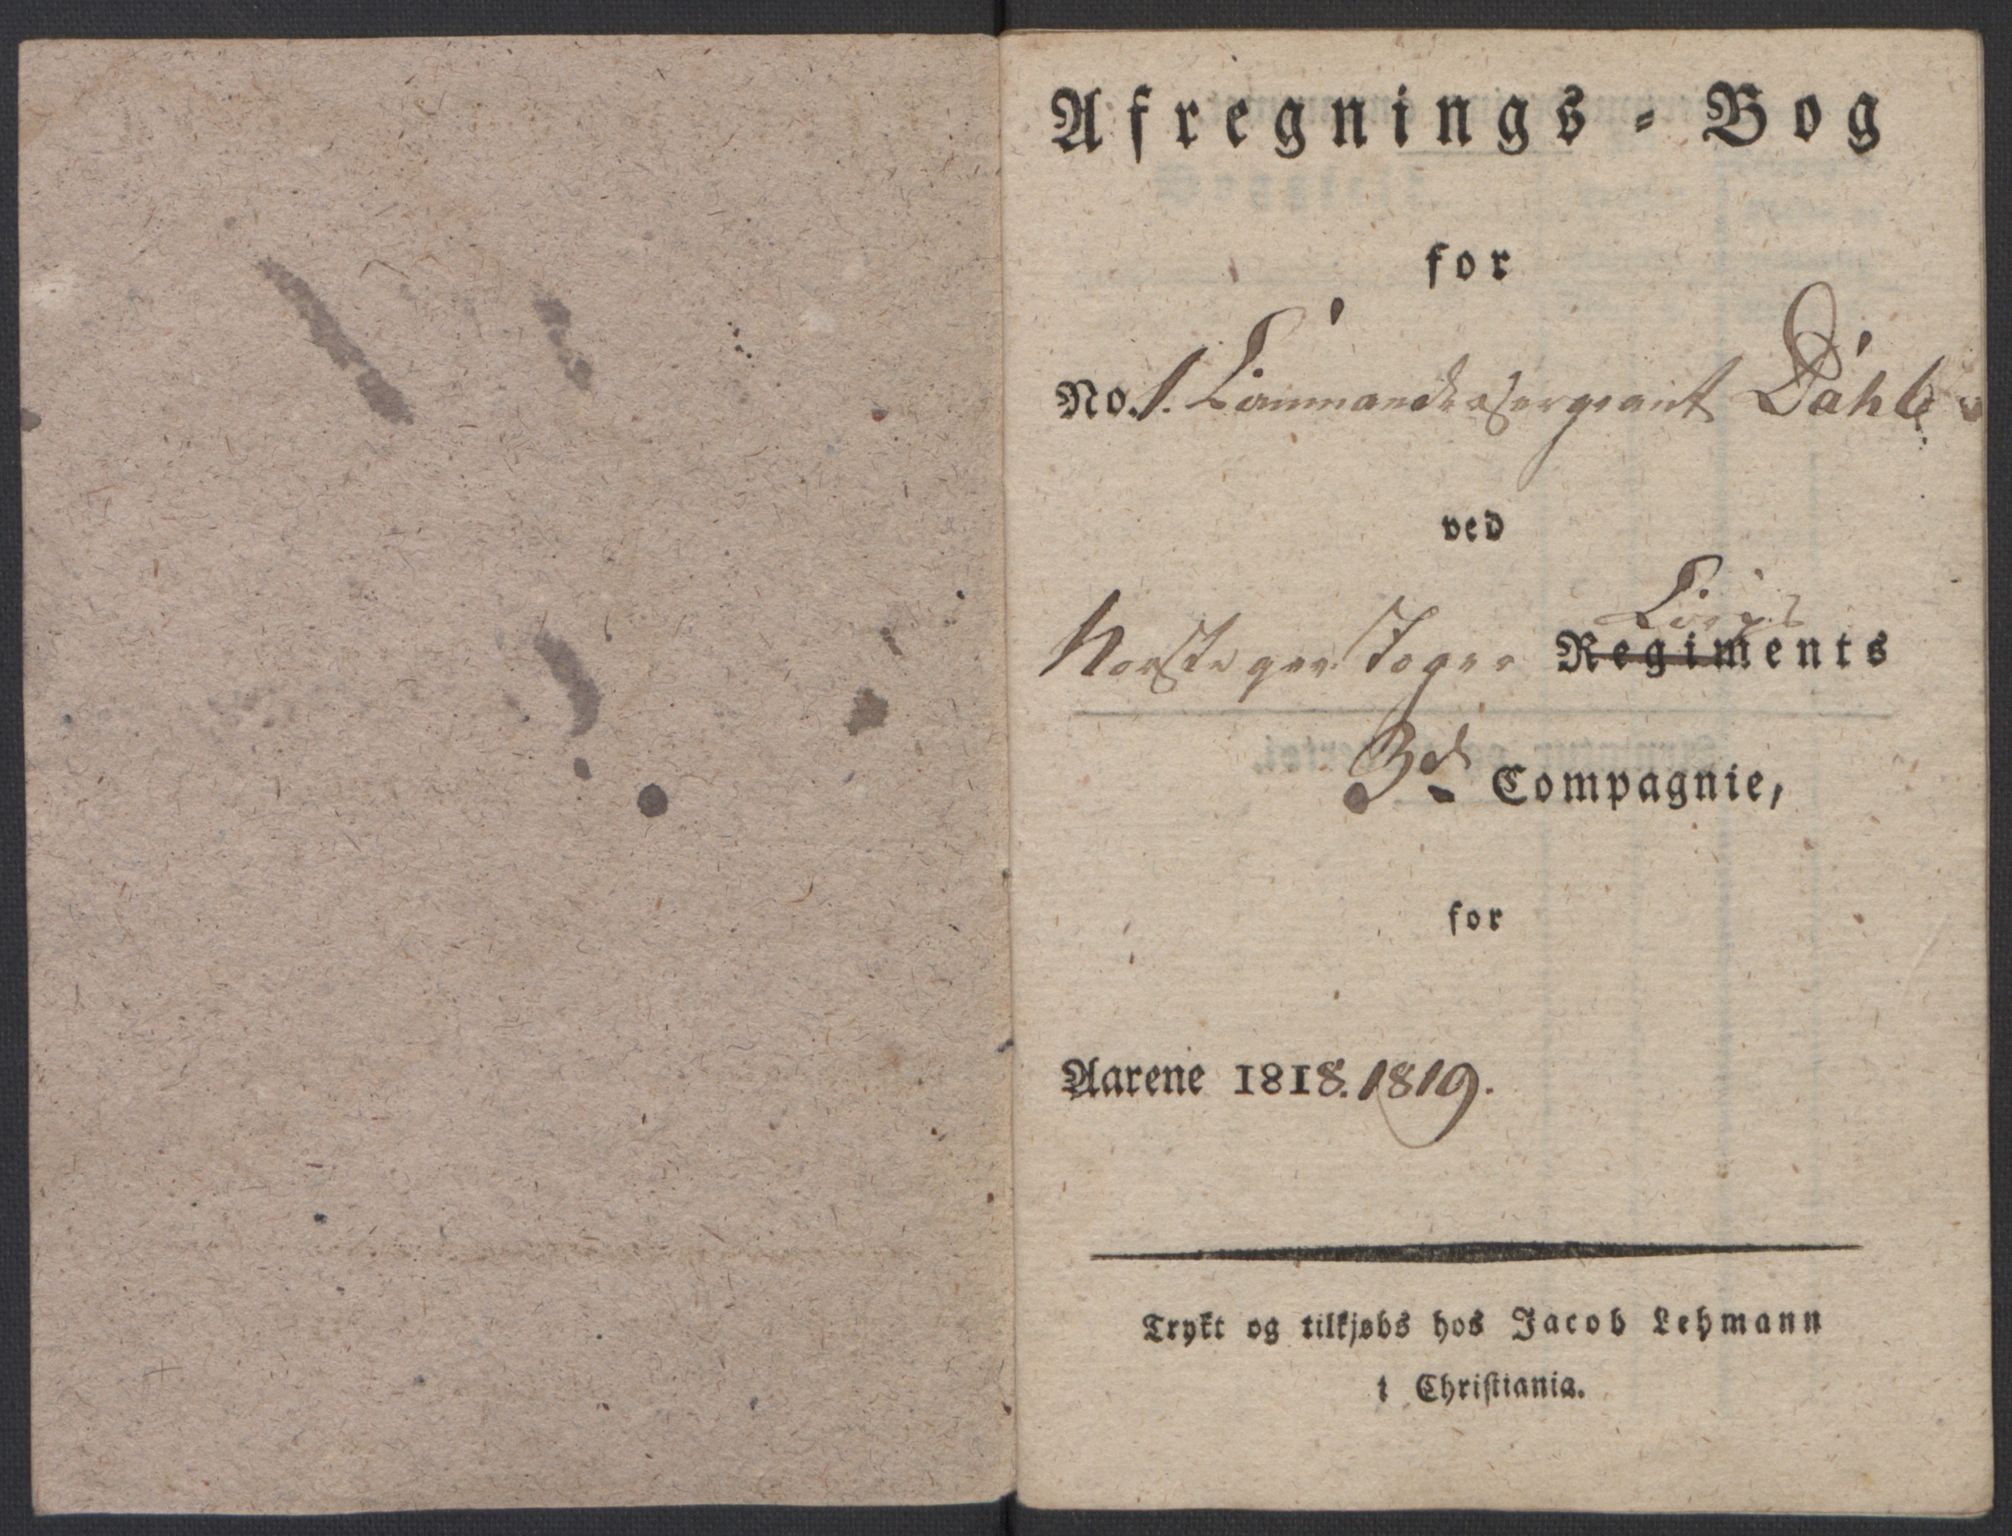 Afregnings-Bog
for
No. 1. Commandersergeant Dahl
ved
Norske gev. Jæger Corps
Regiments
3d Compagnie,
for
Aarene 1818. 1819.
Trykt og tilkjøbs hos Jacob Lehmann
i Christiania.